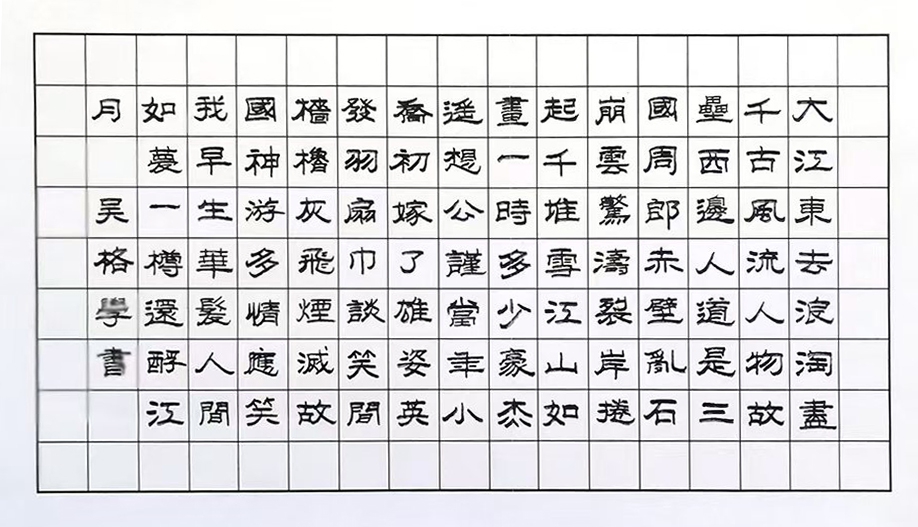 大江東去浪淘盡
千古風流人物故
壘西邊人道是三
國周郎赤壁亂石
崩雲驚濤裂岸捲
起千堆雪江山如
畫一時多少豪杰
遥想公謹當年小
喬初嫁了雄姿英
發羽扇巾談笑間
檣櫓灰飛煙滅故
國神游多情應笑
我早生華髮人間
如夢一樽還酹江
月 吴格學書